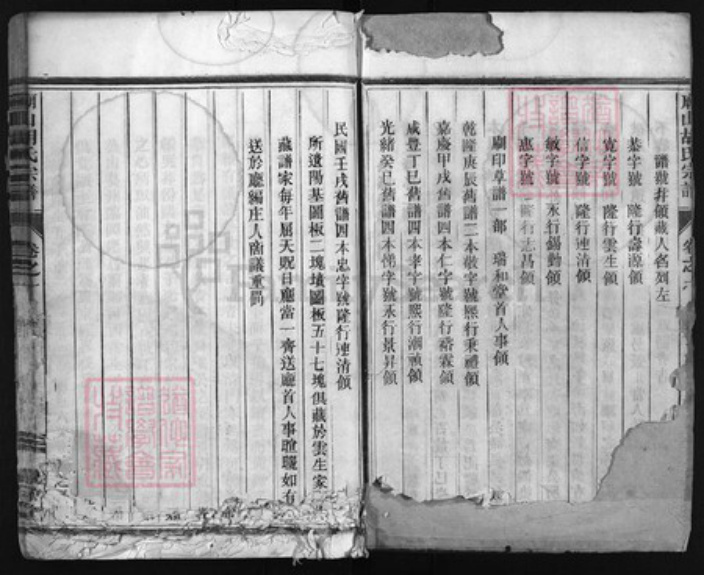 譜號并領藏人名列左
恭字號 隆行壽源領
寬字號 隆行雲生領
信字號 隆行連清領
敏字號 永行錫勳領
惠字號 隆行志昌領
刷印草譜一部 瑞和堂首人事領
乾隆庚辰舊譜二本敬字號熙行秉禮領
嘉慶甲戌舊譜四本仁字號隆行裕霖領
咸豐丁巳舊譜四本孝字號熙行潮禎領
光緒癸巳舊譜四本悌字號永行景昇領
民國壬戌舊譜四本忠字號隆行連清領
所遺陽基圖板二塊墳圖板五十七塊俱藏於雲生家
藏譜家每年屆天貺日應當一齊送廳首人事晾曬如有
送於廳編庄人商議重罰
胡氏宗譜
卷之